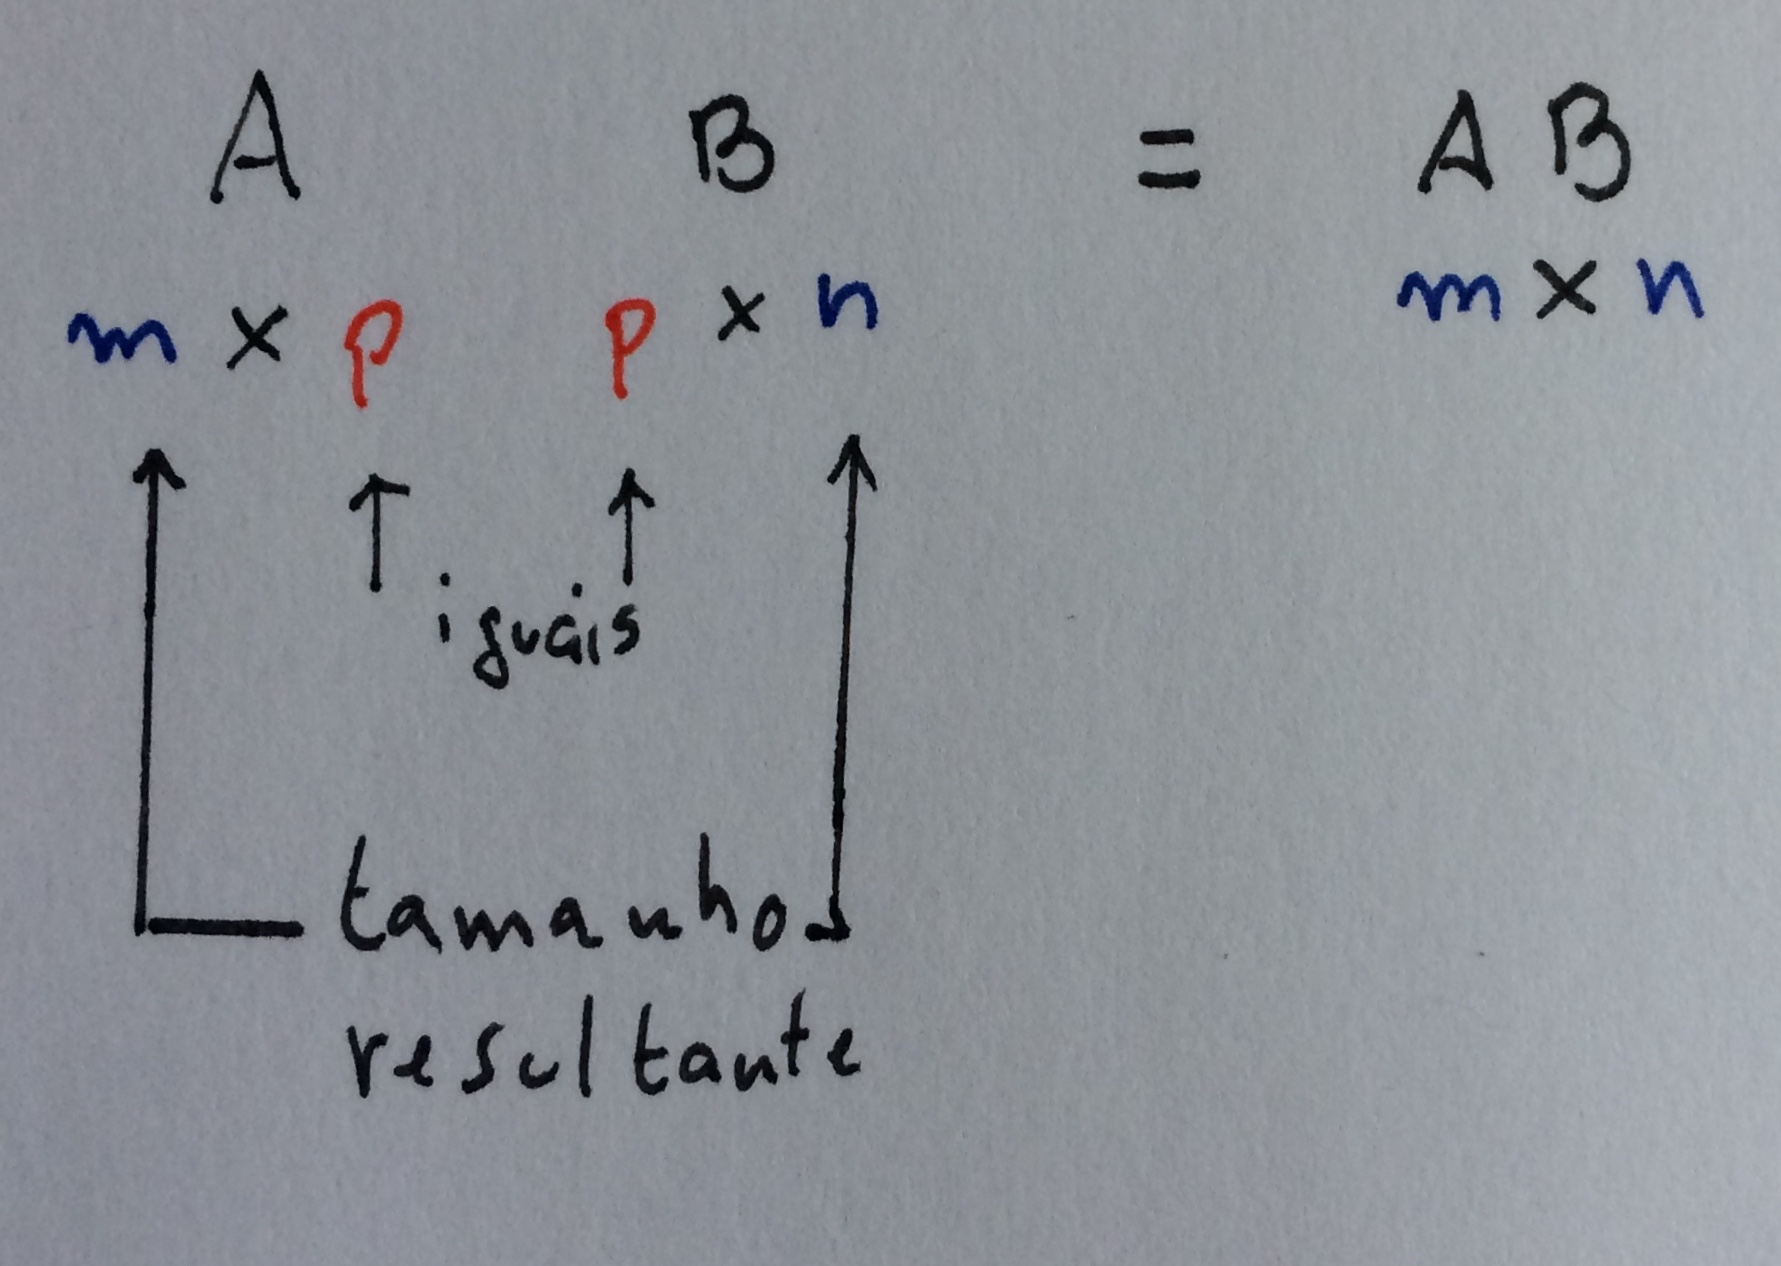 A B = A B
m × p p × n m × n
iguais
tamanhos
resultante